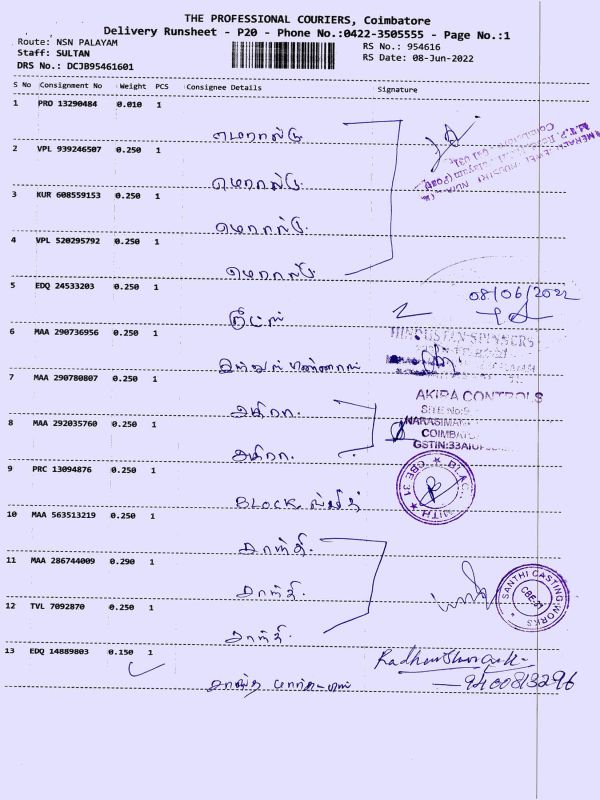 THE PROFESSIONAL COURIERS, Coimbatore
Delivery Runsheet - P20 - Phone No.:0422-3505555 - Page No.:1
Route: NSN PALAYAM
RS No.: 954616
Staff: SULTAN
RS Date: 08-Jun-2022
DRS No.: DCJB95461601
S No Consignment No Weight PCS Consignee Details Signature
1 PRO 13290484 0.010 1
எமரால்டு
2 VPL 939246507 0.250 1
எமரால்டு
3 KUR 608559153 0.250 1
எமரால்டு
4 VPL 520295792 0.250 1
எமரால்டு
5 EDQ 24533203 0.250 1
08/06/2022
6 MAA 290736956 0.250 1
HINDUSTAN SPINNERS
7 MAA 290780807 0.250 1
AKIRA CONTROLS
SITE No:9
8 MAA 292035760 0.250 1
COIMBAT
GSTIN:33A
9 PRC 13094876 0.250 1
CBE 31
BLOCK
10 MAA 563513219 0.250 1
சாந்தி
11 MAA 286744009 0.290 1
சாந்தி
SANTHI CASTING WORKS
CBE-31
12 TVL 7092870 0.250 1
சாந்தி
13 EDQ 14889803 0.150 1
9400813296